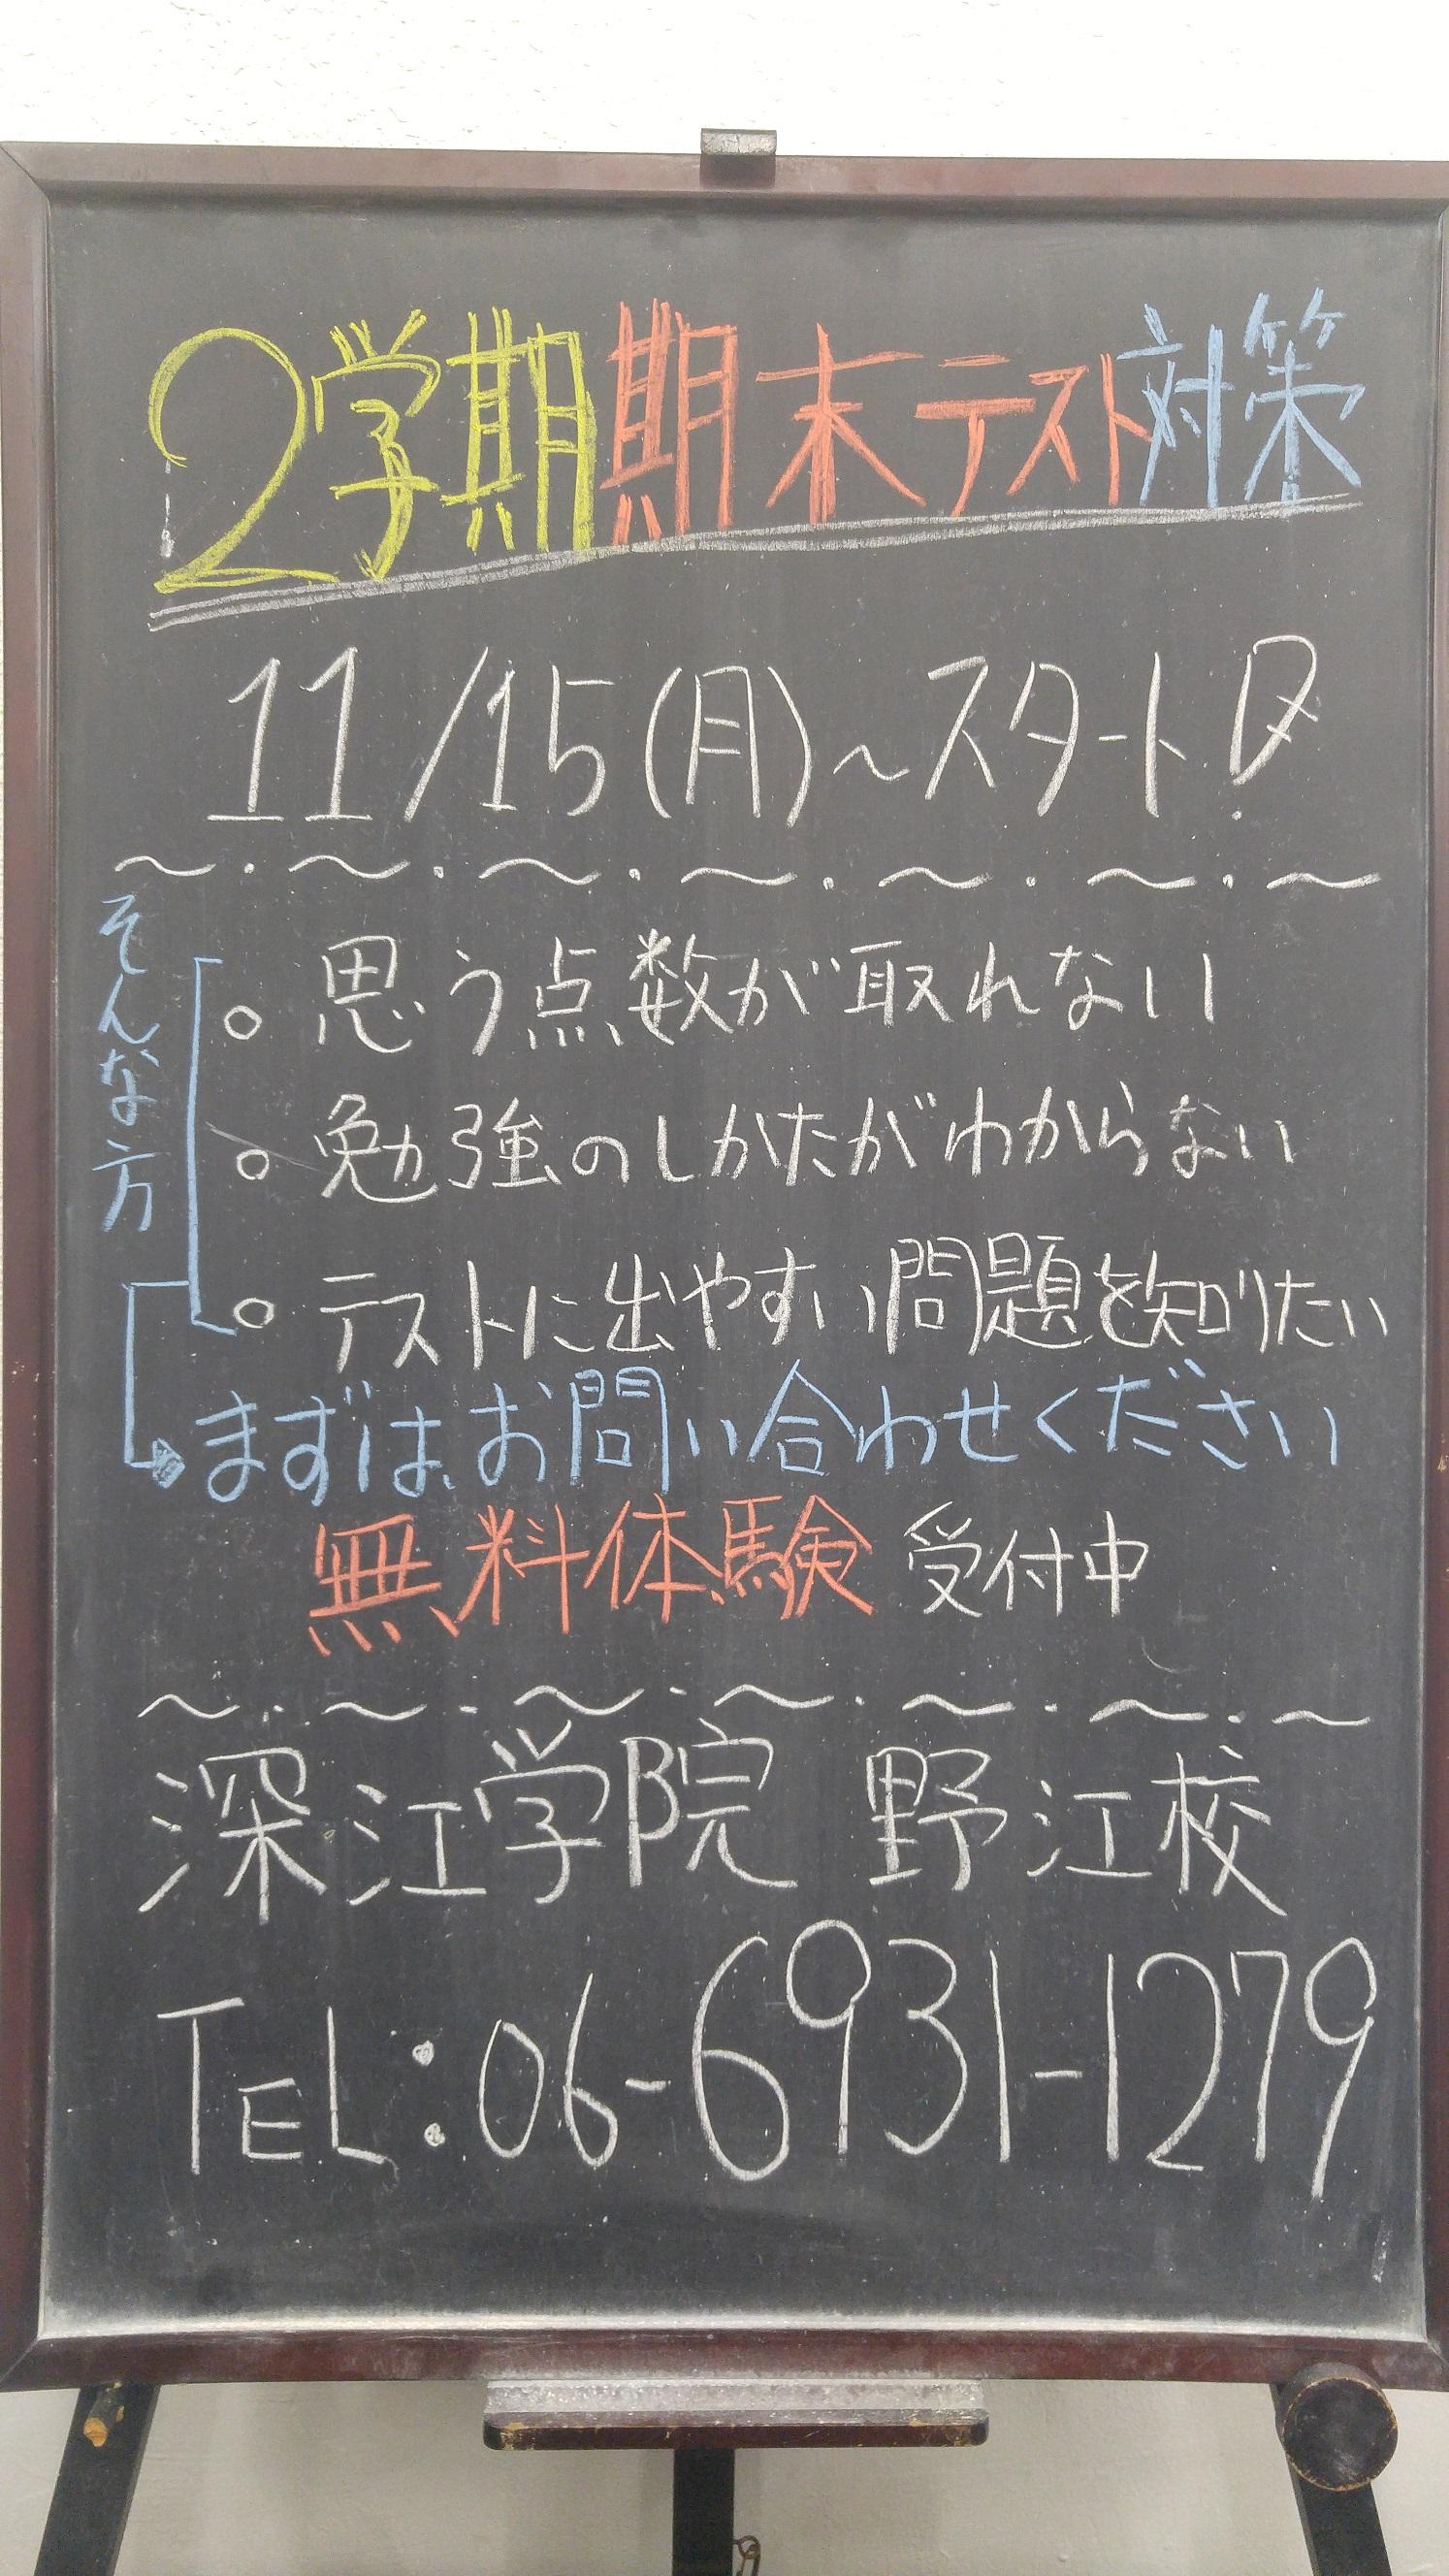 2学期期末テスト対策
11/15(月)～スタート!
そんな方
○ 思う点数が取れない
○ 勉強のしかたがわからない
○ テストに出やすい問題を知りたい
まずはお問い合わせください
無料体験 受付中
深江学院 野江校
TEL:06-6931-1279